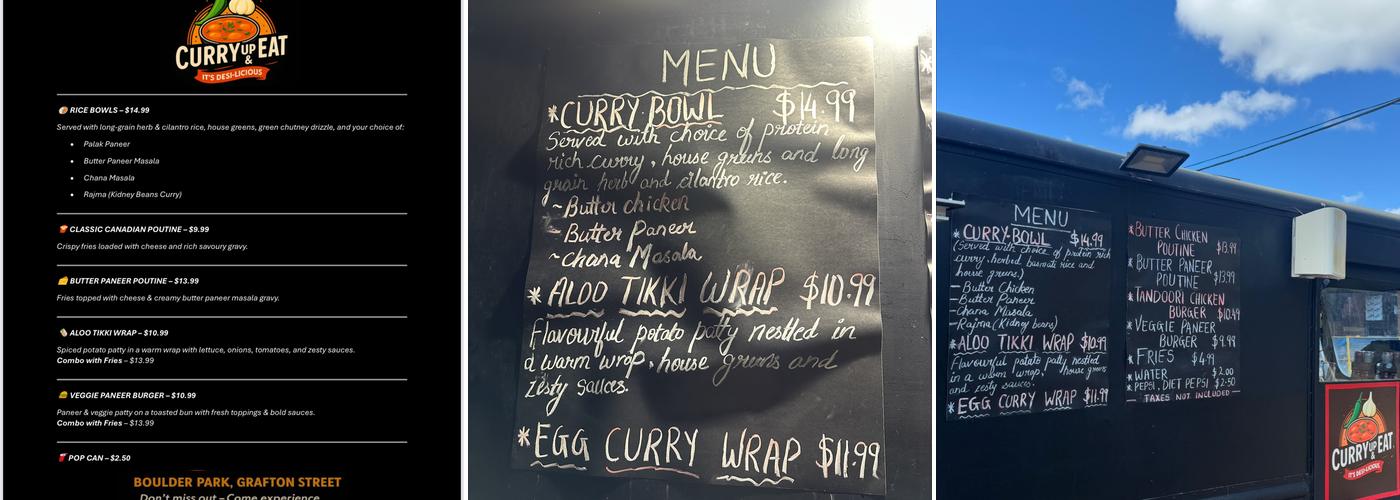 CURRY UP & EAT
IT'S DESI-LICIOUS
RICE BOWLS – $14.99
Served with long-grain herb & cilantro rice, house greens, green chutney drizzle, and your choice of:
• Palak Paneer
• Butter Paneer Masala
• Chana Masala
• Rajma (Kidney Beans Curry)
CLASSIC CANADIAN POUTINE – $9.99
Crispy fries loaded with cheese and rich savoury gravy.
BUTTER PANEER POUTINE – $13.99
Fries topped with cheese & creamy butter paneer masala gravy.
ALOO TIKKI WRAP – $10.99
Spiced potato patty in a warm wrap with lettuce, onions, tomatoes, and zesty sauces.
Combo with Fries – $13.99
VEGGIE PANEER BURGER – $10.99
Paneer & veggie patty on a toasted bun with fresh toppings & bold sauces.
Combo with Fries – $13.99
POP CAN – $2.50
BOULDER PARK, GRAFTON STREET
Don't miss out – Come experience
MENU
*CURRY BOWL $14.99
Served with choice of protein
rich curry, house greens and long
grain herb and cilantro rice.
~Butter chicken
~Butter Paneer
~Chana Masala
*ALOO TIKKI WRAP $10.99
Flavourful potato patty nestled in
a warm wrap, house greens and
zesty sauces.
*EGG CURRY WRAP $11.99
MENU
*CURRY BOWL $14.99
(Served with choice of protein rich
curry, herbed basmati rice and
house greens.)
– Butter Chicken
– Butter Paneer
– Chana Masala
– Rajma (Kidney beans)
*ALOO TIKKI WRAP $10.99
Flavourful potato patty nestled
in a warm wrap, house greens
and zesty sauces.
*EGG CURRY WRAP $11.99
*BUTTER CHICKEN
POUTINE $13.99
*BUTTER PANEER
POUTINE $13.99
*TANDOORI CHICKEN
BURGER $10.49
*VEGGIE PANEER
BURGER $9.98
*FRIES $4.99
*WATER $2.00
*PEPSI, DIET PEPSI $2.50
— TAXES NOT INCLUDED —
CURRY UP & EAT
IT'S DESI-LICIOUS